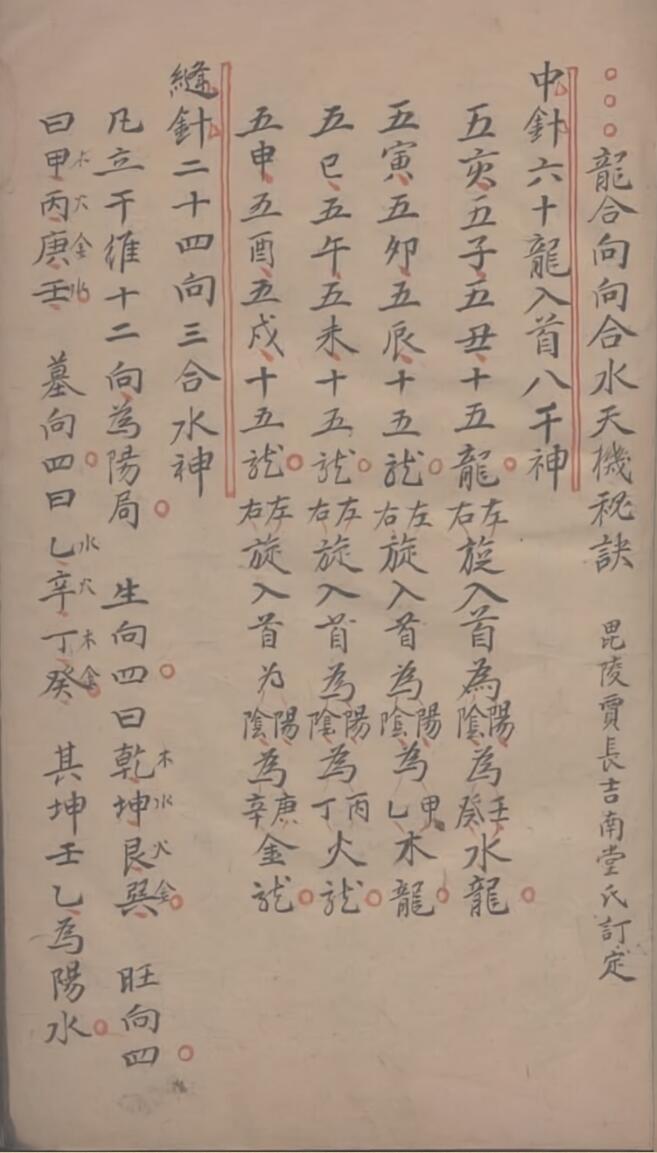 龍合向向合水天機秘訣 毘陵賈長吉南堂氏訂定
中針六十龍入首八干神
五亥五子五丑十五龍左右旋入首為陽陰為壬癸水龍
五寅五卯五辰十五龙左右旋入首為陽陰為甲乙木龍
五巳五午五未十五龙左右旋入首為陽陰為丙丁火龙
五申五酉五戍十五龙左右旋入首为陽陰為庚辛金龙
縫針二十四向三合水神
凡立干維十二向為陽局 生向四曰乾木坤水艮火巽金 旺向四
曰甲木丙火庚金壬水 墓向四曰乙水辛火丁木癸金 其坤壬乙為陽水